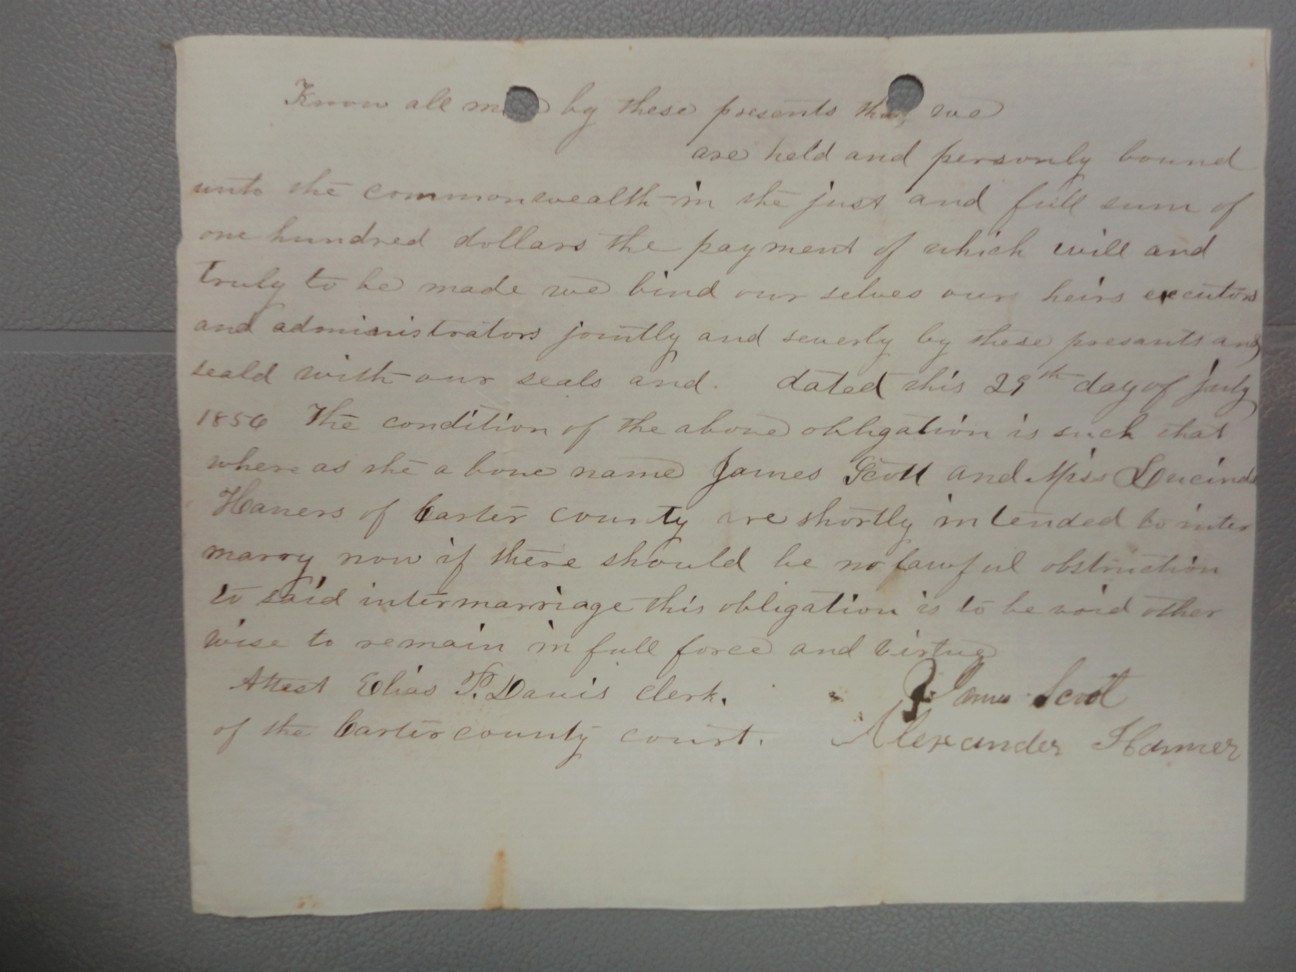 Know all men by these presents that we
are held and personly bound
unto the commonwealth in the just and full sum of
one hundred dollars the payment of which will and
truly to be made we bind our selves our heirs executors
and administrators jointly and severly by these presants and
seald with our seals and. dated this 29th day of July
1856 The condition of the above obligation is such that
where as the a bove name James Scott and Miss Lucinda
Haners of Carter county are shortly intended to inter
marry now if there should be no lawful obstruction
to said intermarriage this obligation is to be void other
wise to remain in full force and virtue
Attest Elias P. Davis clerk. James Scott
of the Carter county court. Alexander Hamner